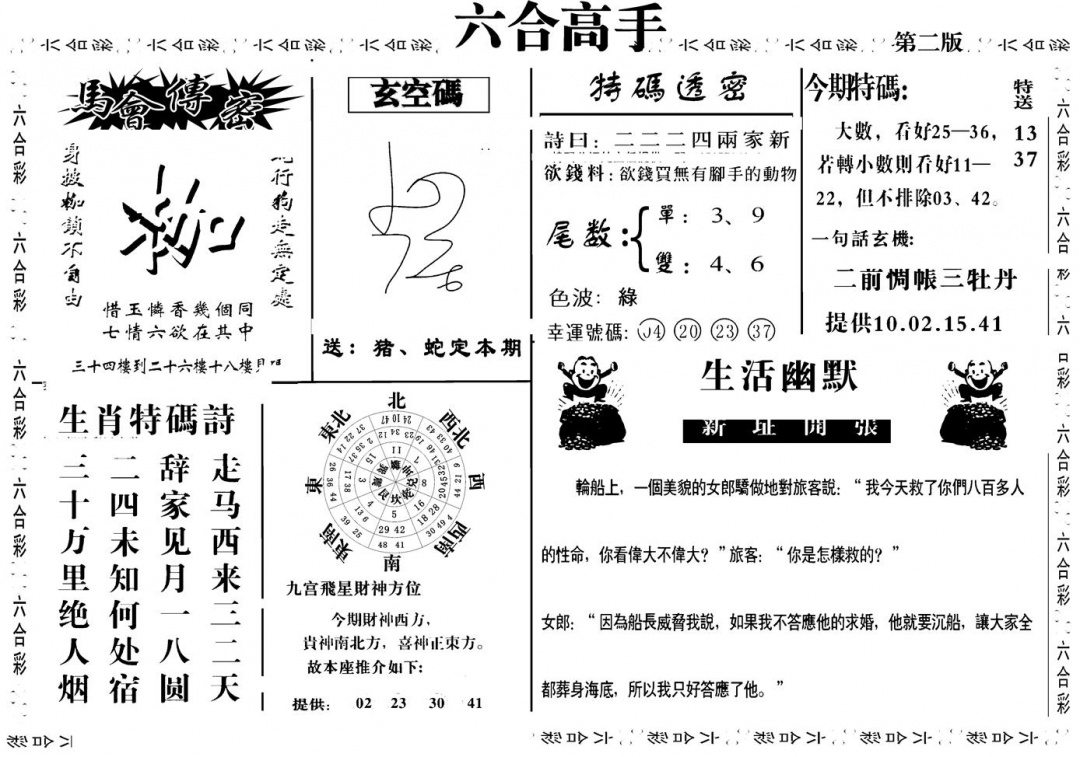 六合高手
第二版
馬會傳密
身披枷鎖不自由
行狗走無定處
惜玉憐香幾個同
七情六欲在其中
三十四樓到二十六樓十八樓
玄空碼
送：豬、蛇定本期
特碼透密
詩曰：二二二四兩家新
欲錢料：欲錢買無有腳手的動物
尾数：
單：3、9
雙：4、6
色波：綠
幸運號碼：04 20 23 37
今期特碼：
特送
13
37
大數，看好25—36，
若轉小數則看好11—
22，但不排除03、42。
一句話玄機：
二前惆帳三牡丹
提供10.02.15.41
生肖特碼詩
走马西来三二天
辞家见月一八圆
二四未知何处宿
三十万里绝人烟
北
西北
西
西南
南
東南
東
東北
九宫飛星財神方位
今期財神西方，
貴神南北方，喜神正東方。
故本座推介如下：
提供： 02 23 30 41
生活幽默
新址開張
輪船上，一個美貌的女郎驕做地對旅客說：“我今天救了你們八百多人
的性命，你看偉大不偉大？”旅客：“你是怎樣救的？”
女郎：“因為船長威脅我說，如果我不答應他的求婚，他就要沉船，讓大家全
都葬身海底，所以我只好答應了他。”
六合彩